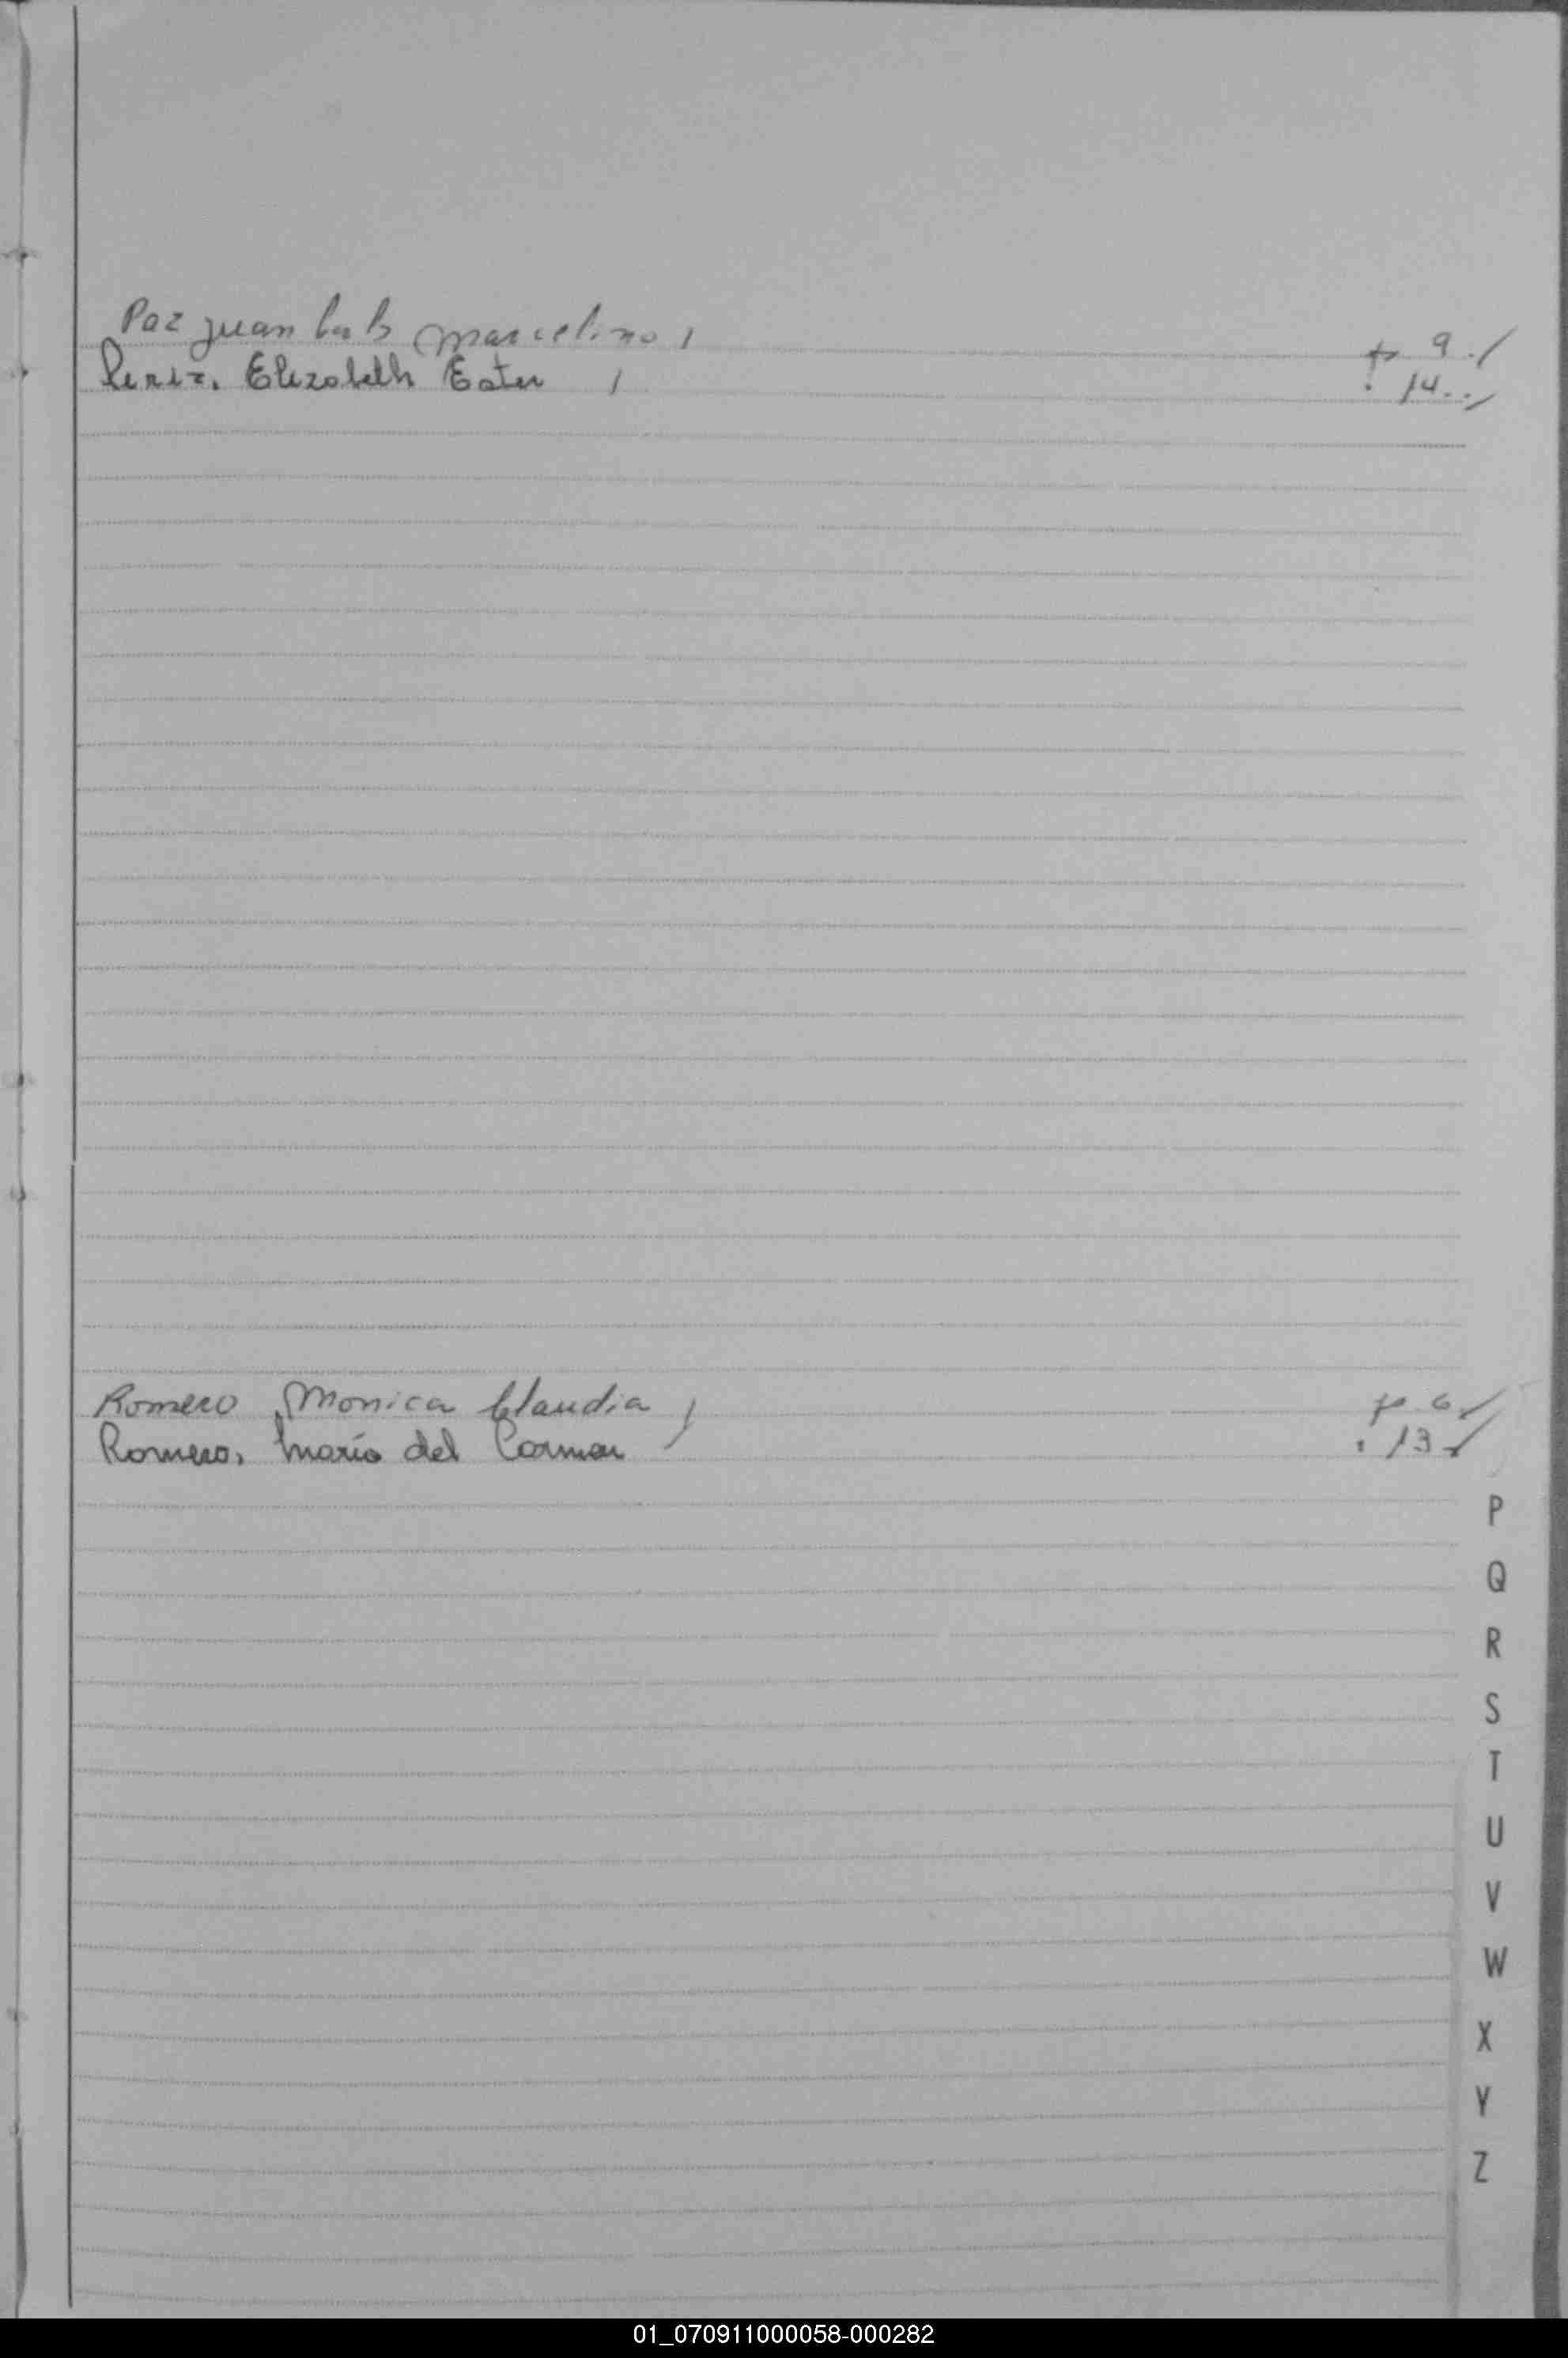 Paz Juan Carlos Marcelino p 9
Perez, Elizabeth Ester . 14
Romero Monica Claudia p 6
Romero, María del Carmen . 13
P
Q
R
S
T
U
V
W
X
Y
Z
01_070911000058-000282